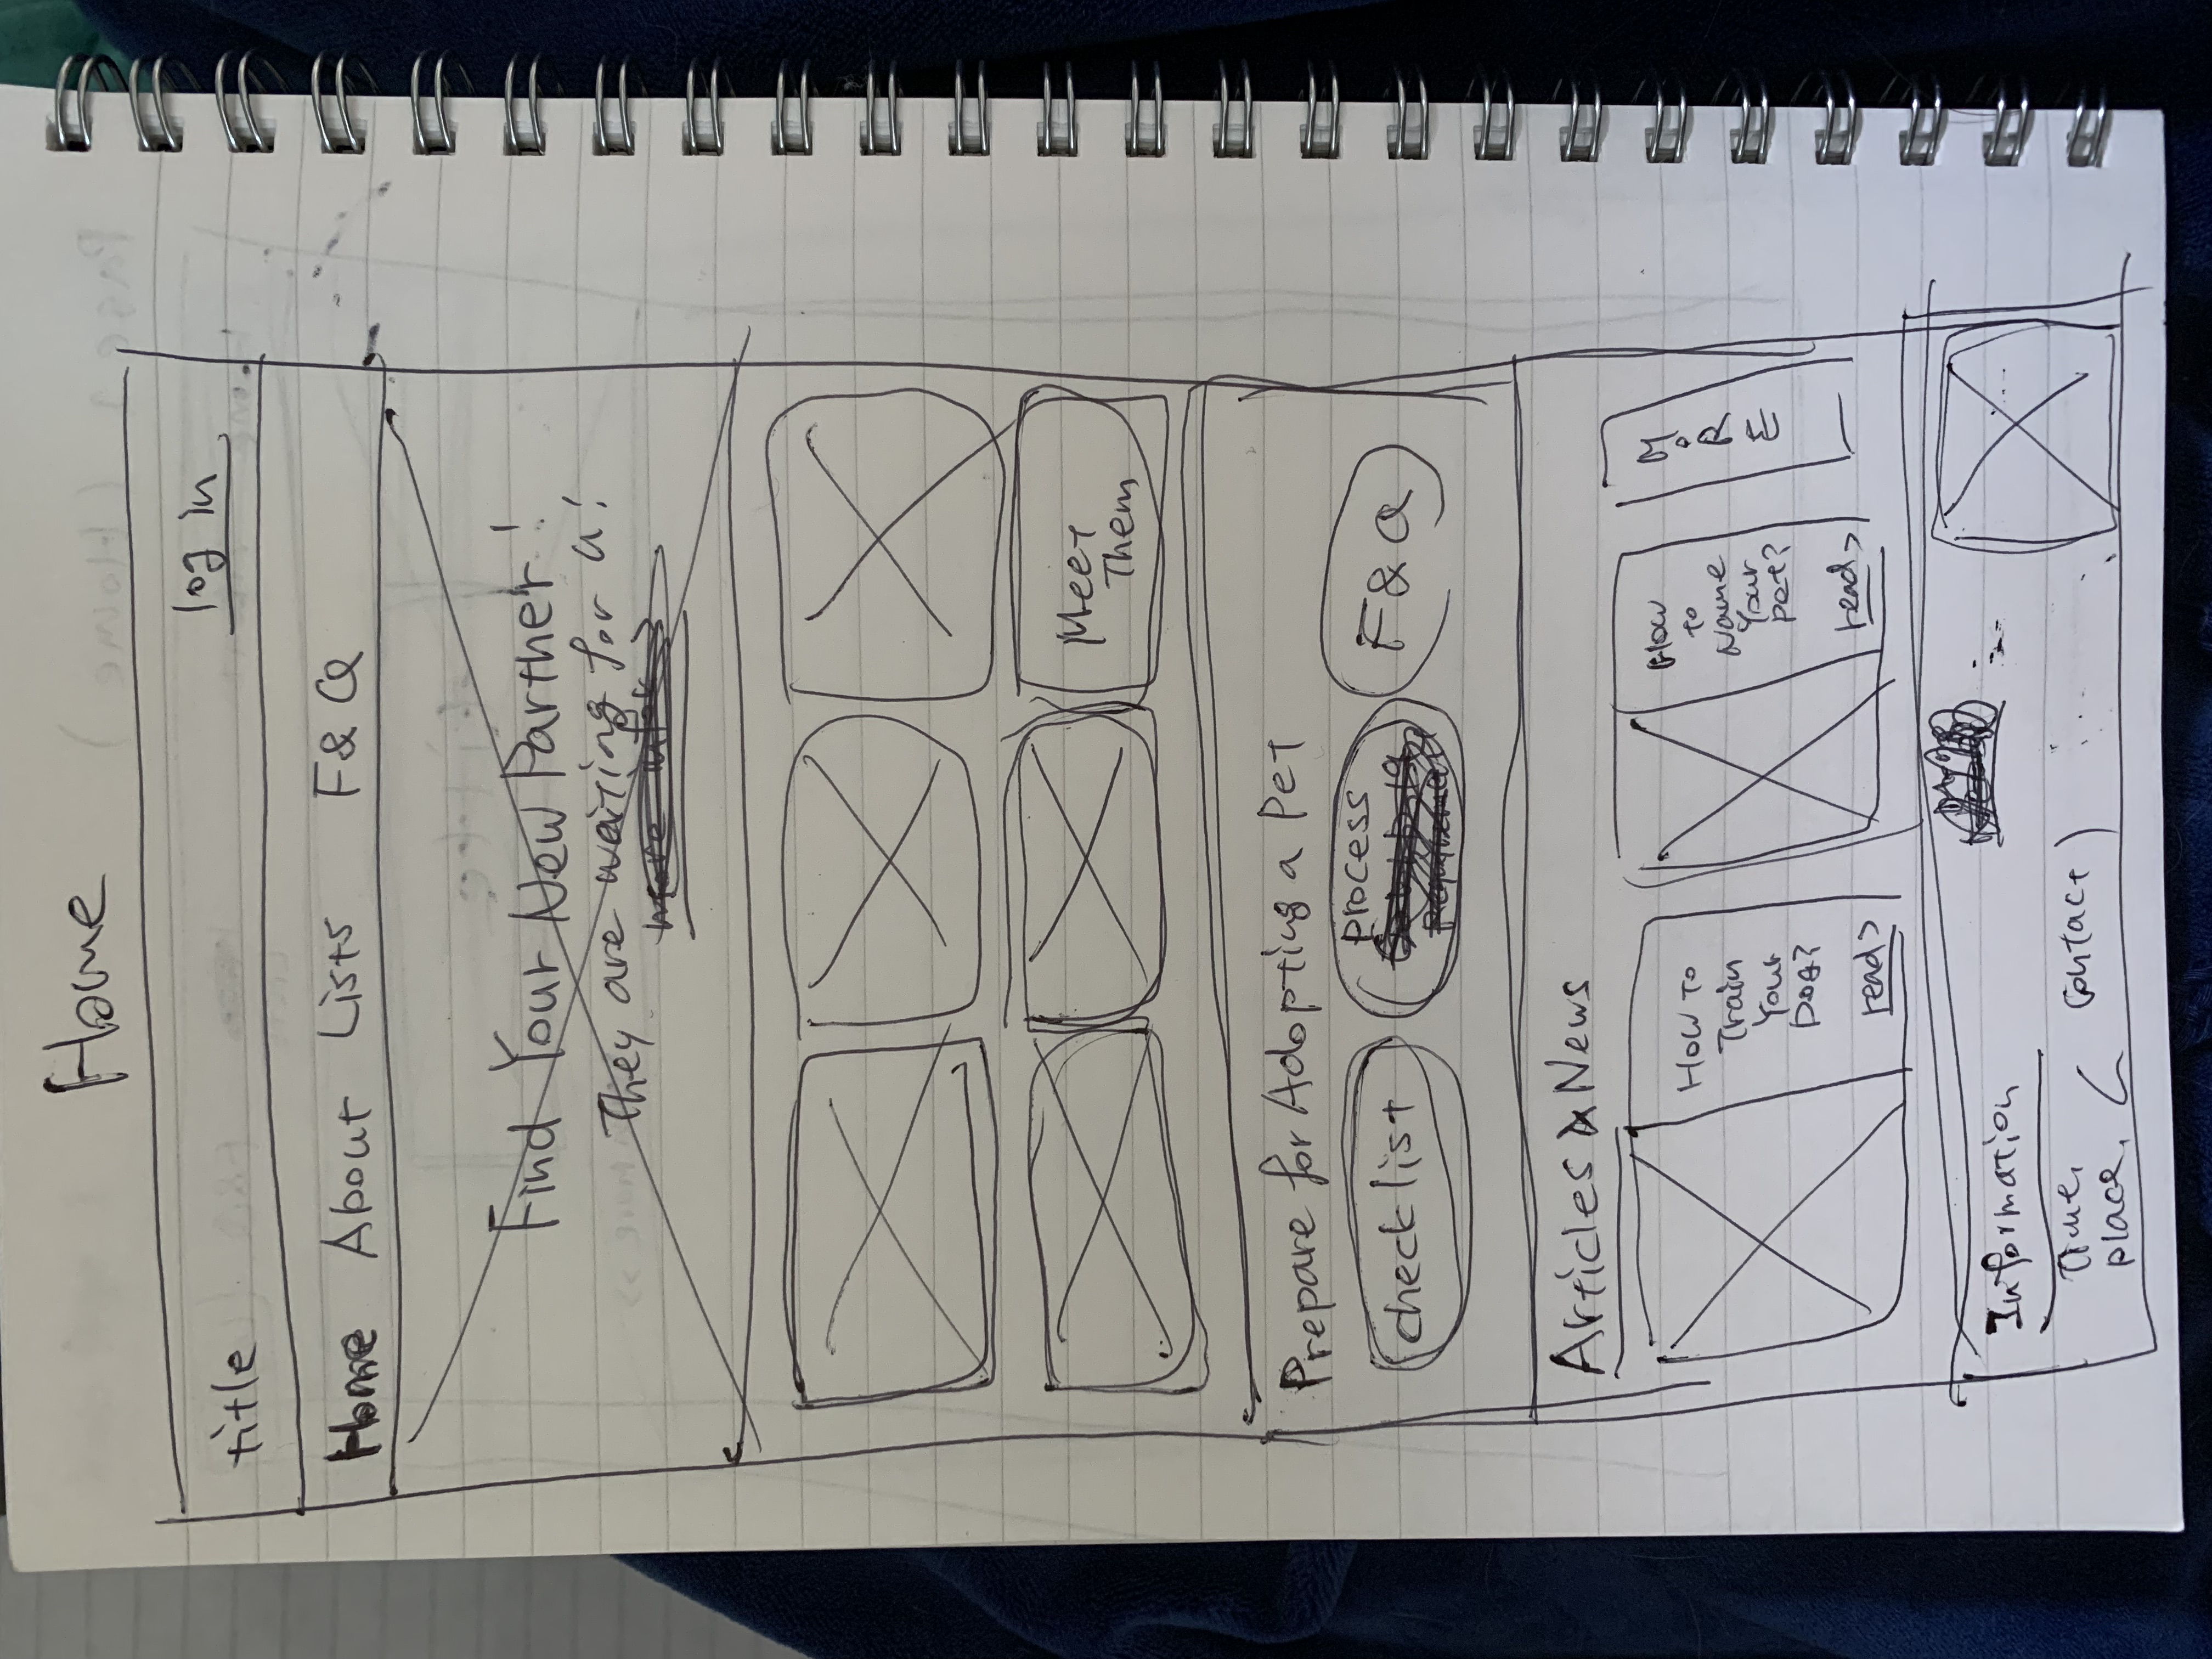 Home
title
log in
Home About Lists F&Q
Find Your New Partner!
They are waiting for u!
more info
Meet
Them
Prepare for Adopting a Pet
checklist
process
F&Q
Articles & News
How To
Train
Your
Dog?
read>
How
to
Name
Your
pet?
read>
MORE
Information
Time,
place, ( contact )